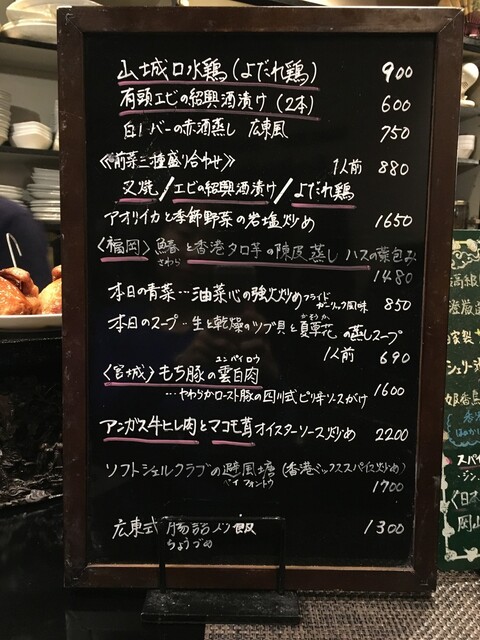 山城口水鶏(よだれ鶏) 900
有頭エビの紹興酒漬け(2本) 600
白レバーの赤酒蒸し 広東風 750
≪前菜三種盛り合わせ≫ 1人前 880
叉焼/エビの紹興酒漬け/よだれ鶏
アオリイカと季節野菜の岩塩炒め 1650
〈福岡〉鰆と香港タロ芋の陳皮蒸し ハスの葉包み
さわら
1480
本日の青菜…油菜心の強火炒め フライドガーリック風味 850
かそうか
本日のスープ…生と乾燥のツブ貝と夏草花の蒸しスープ
1人前 690
ユンパイロウ
〈宮城〉もち豚の雲白肉
…やわらかロースト豚の四川式ピリ辛ソースがけ 1600
アンガス牛ヒレ肉とマコモ茸オイスターソース炒め 2200
ソフトシェルクラブの避風塘(香港ミックススパイス炒め)
ベイフォントウ
1700
広東式 腸詰メシ飯 1300
ちょうづめ
高級
港厳選
自家製
シェリー酒
スパイ
ジン
〈日本
岡山